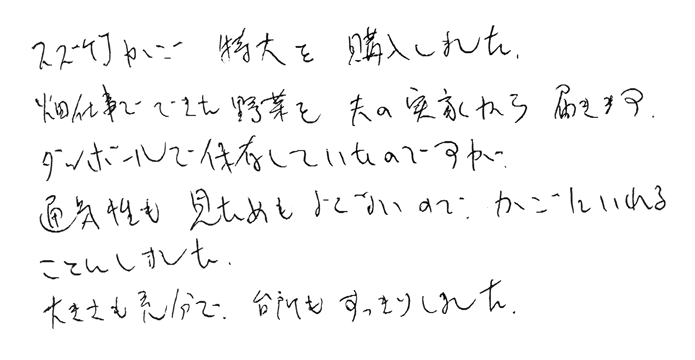 スズ竹かご 特大を 購入しました.
畑仕事でできた野菜を 夫の実家から 届きます.
ダンボールで保存していたのですが.
通気性も 見ためもよくないので. かごにいれる
ことにしました.
大きさも充分で. 台所もすっきりしました.